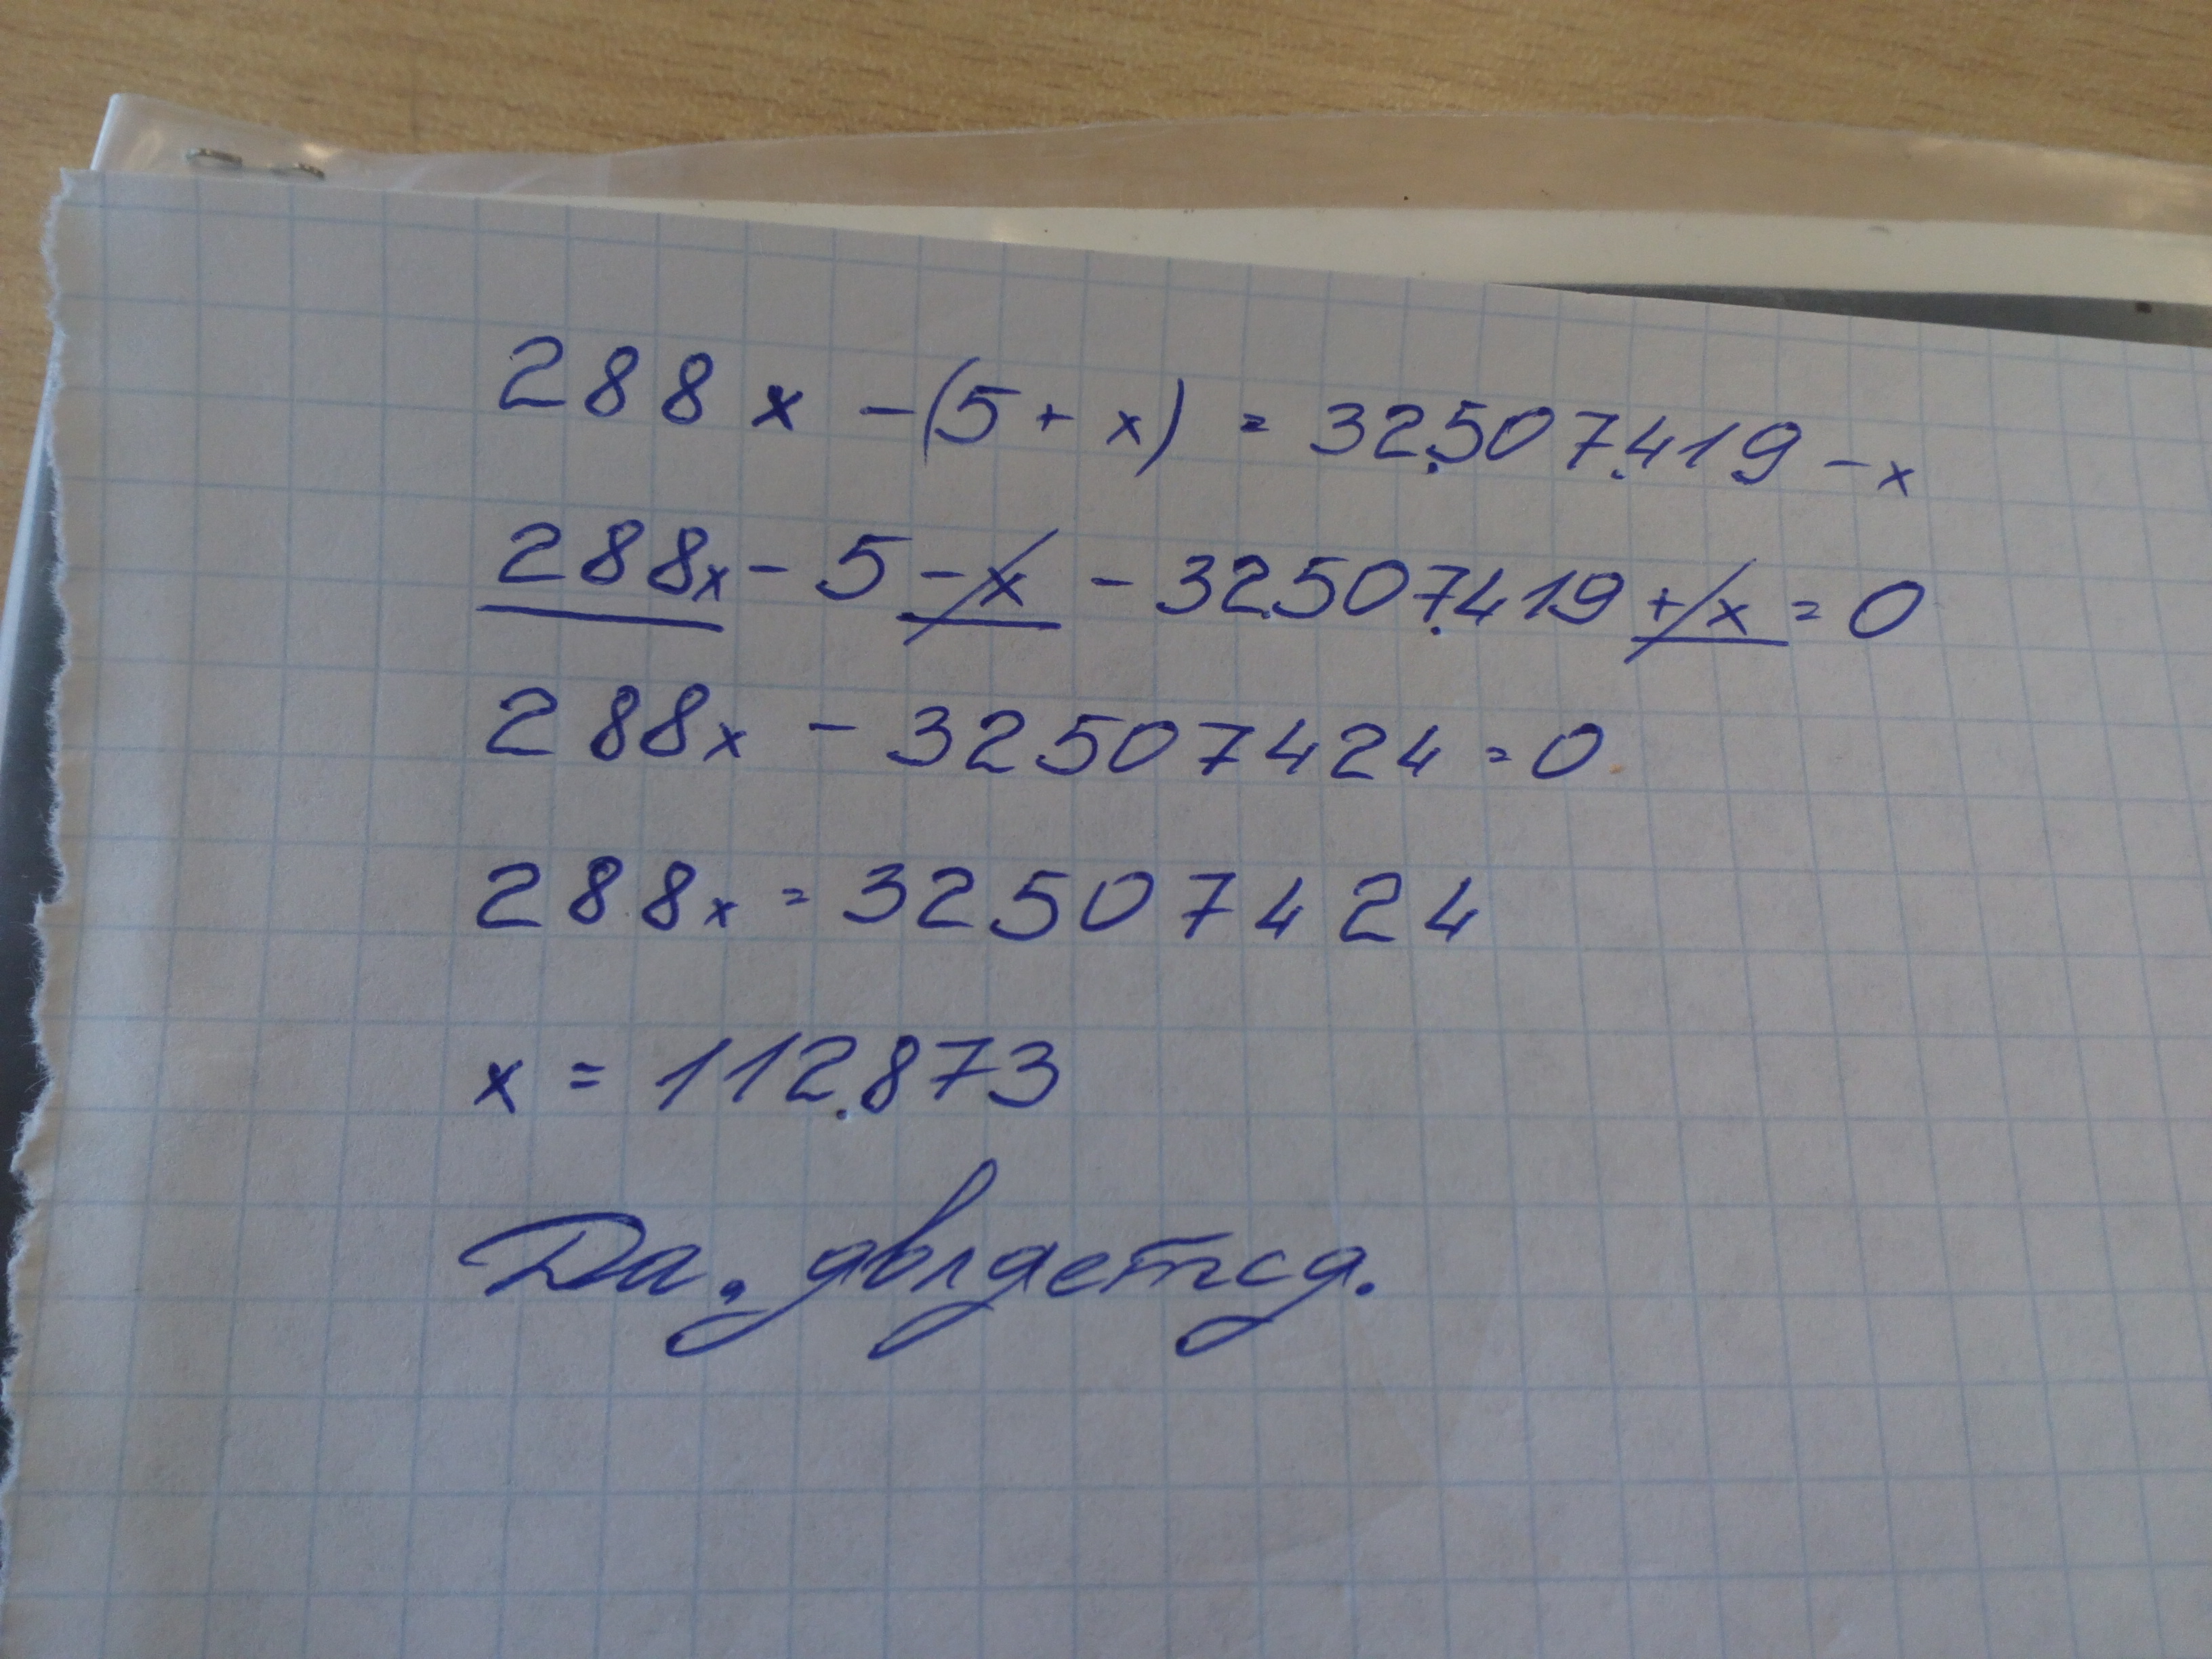 288x - (5 + x) = 32.507.419 - x
288x - 5 - x - 32.507.419 + x = 0
288x - 32507424 = 0
288x = 32507424
x = 112.873
Да, является.